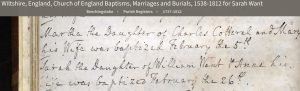 Wiltshire, England, Church of England Baptisms, Marriages and Burials, 1538-1812 for Sarah Want
Beechingstoke > Parish Registers > 1737-1812
Martha the Daughter of Charles Cotteral and Mary
his Wife was baptized February the 5th.
Sarah the Daughter of William Want & Anne his
Wife was baptized February the 26th.